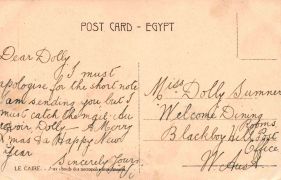 POST CARD - EGYPT
Dear Dolly
I must
apologise for the short note
I am sending you but I
must catch the mail. Au
revoir, Dolly - A Merry
X'mas & a Happy New
Year
Sincerely Yours
LE CAIRE. -
Miss Dolly Sumner
Welcome Dining
Rooms
Blackboy Hill Post
Office
W. Aust